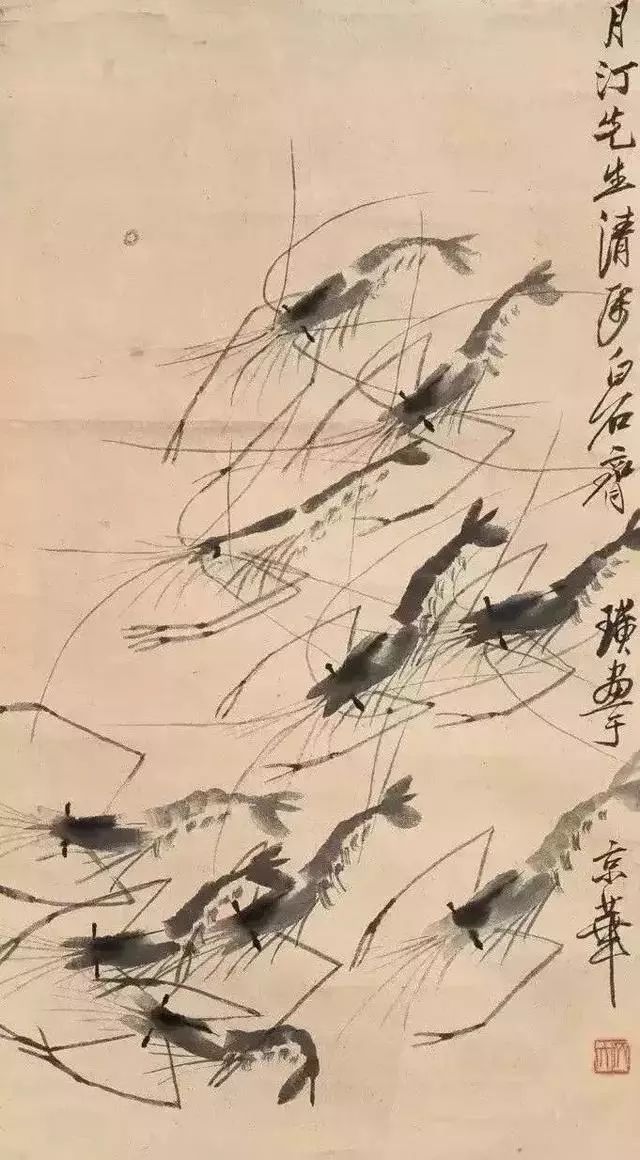 月汀先生清属白石齊璜畫于京華